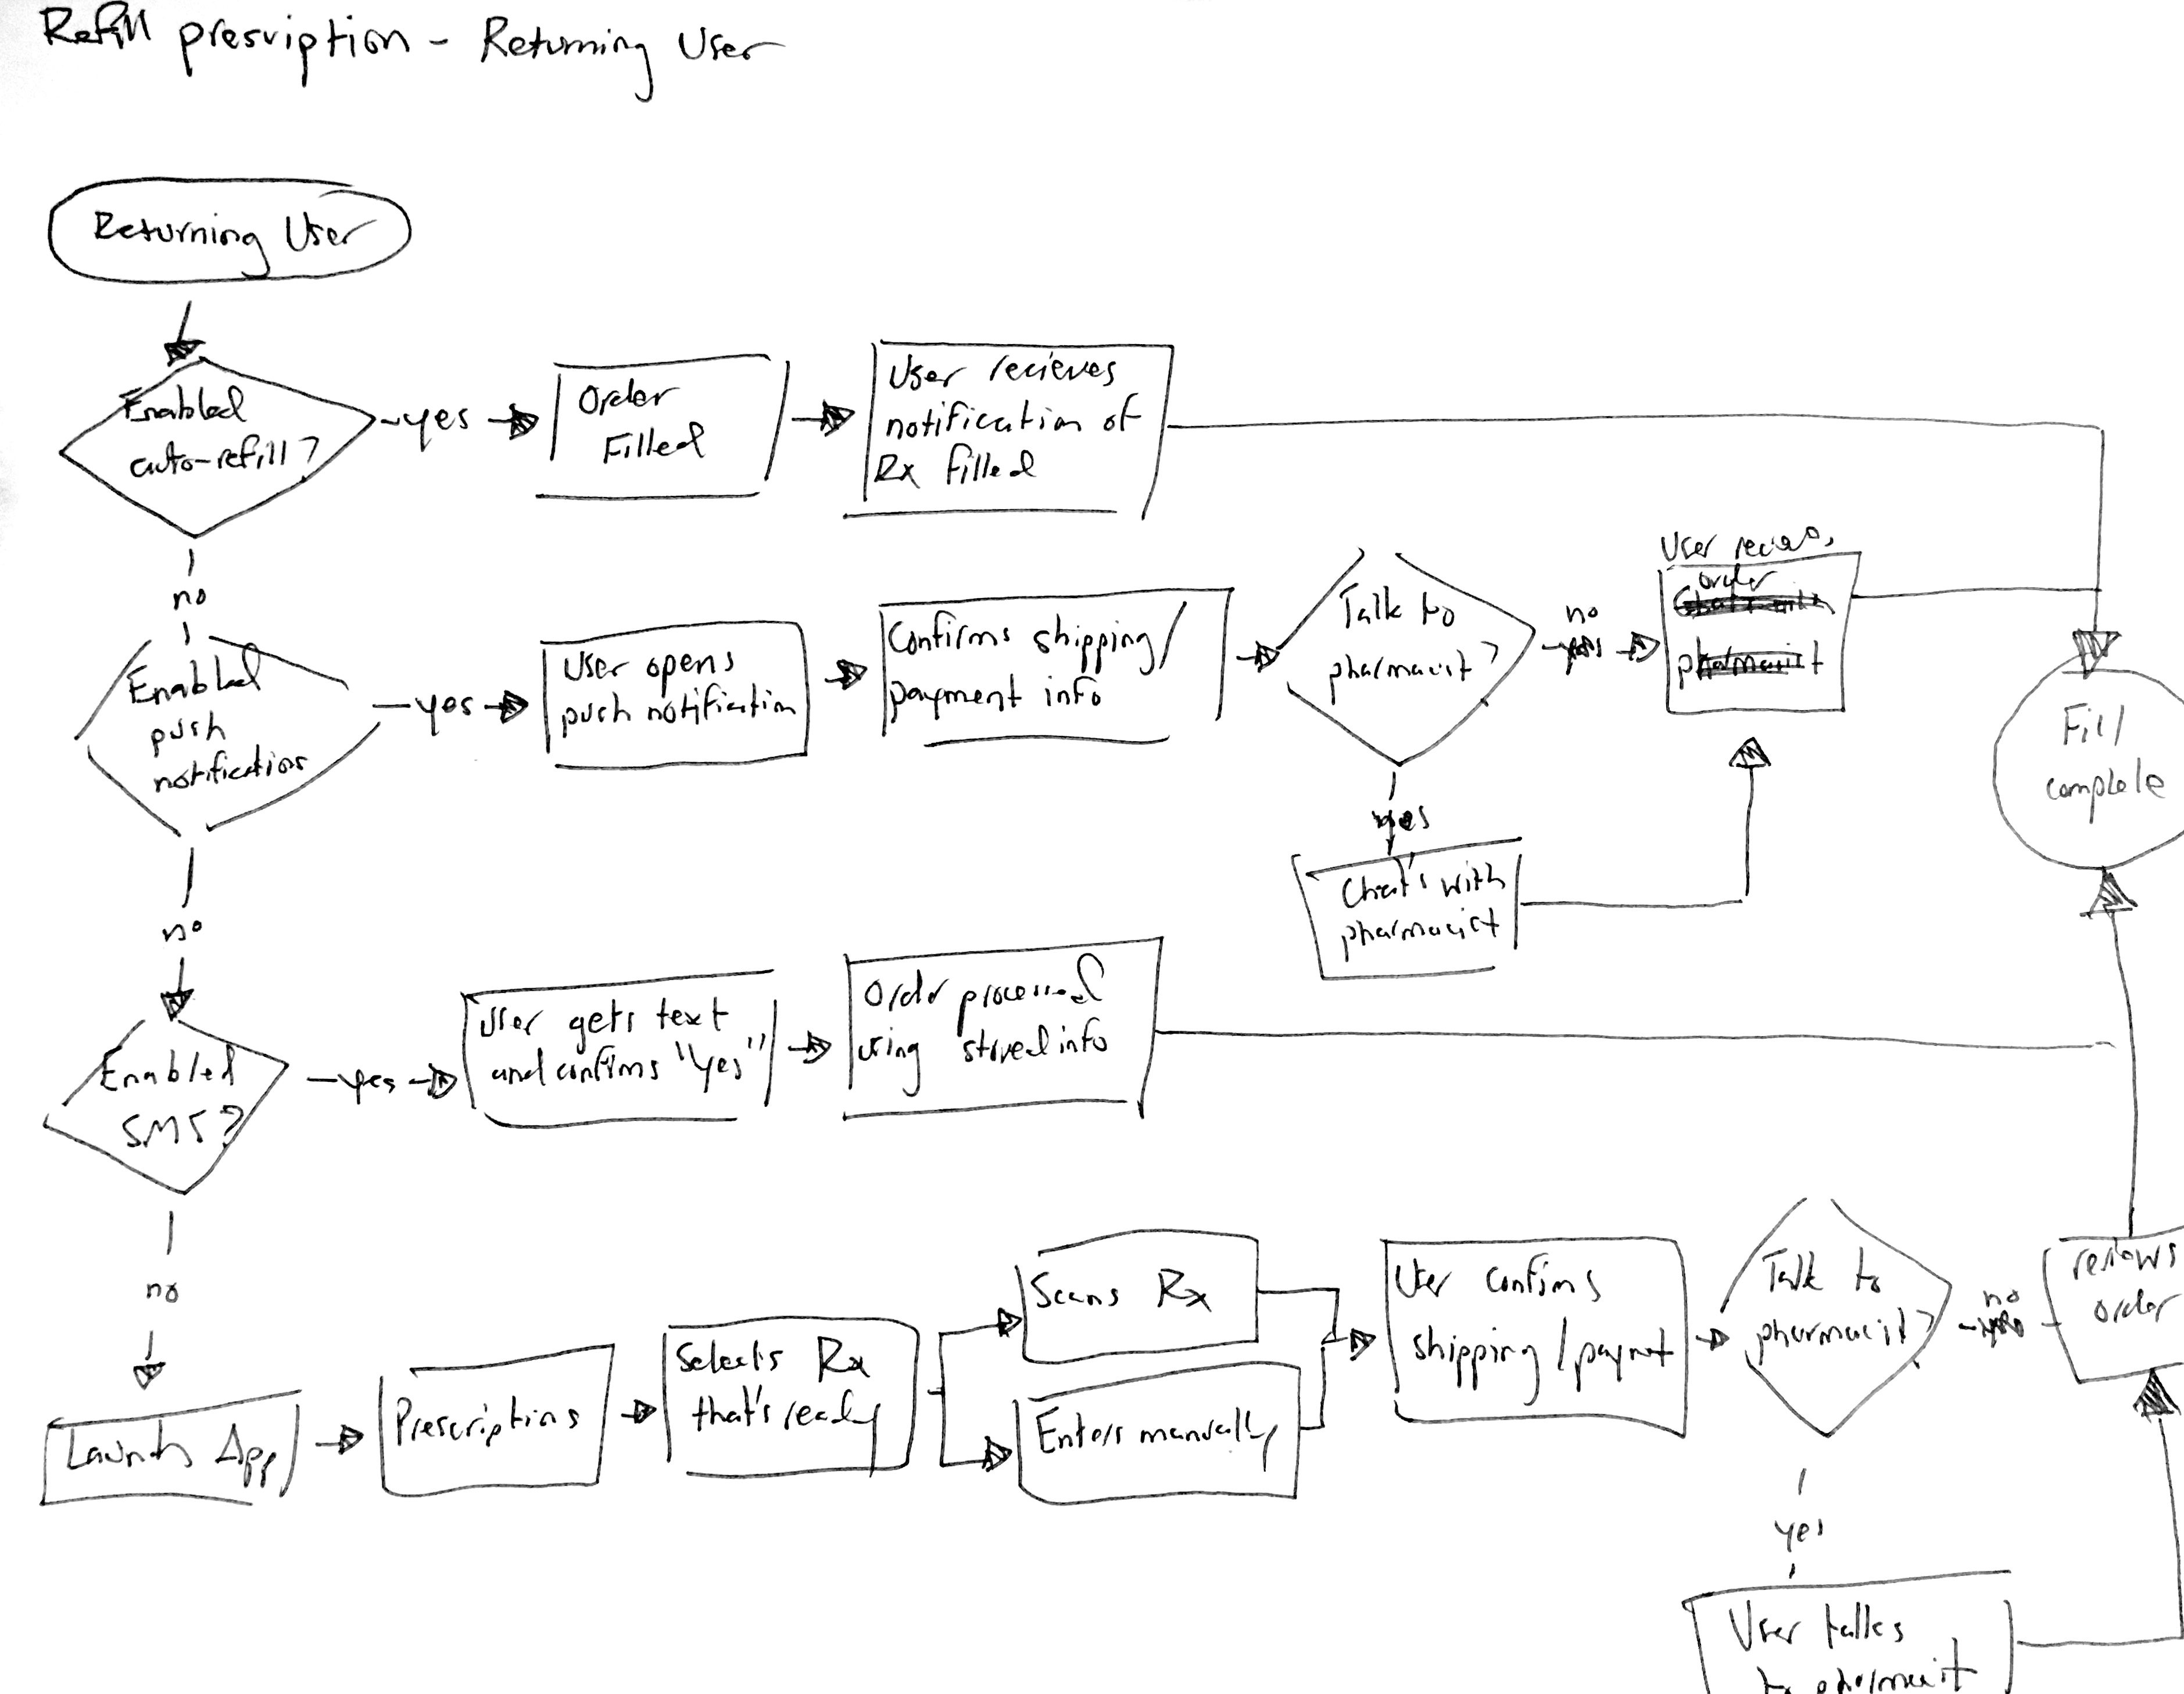 Refill presription - Returning User
Returning User
Enabled
auto-refill?
yes
Order
Filled
User recieves
notification of
Rx filled
no
Enabled
push
notification
yes
User opens
push notification
Confirms shipping/
payment info
Talk to
pharmacist?
no
User
order
yes
Chat's with
pharmacist
Fill
complete
no
Enabled
SMS?
yes
User gets text
and confirms "yes"
Order processed
using stored info
no
Launch App
Prescriptions
Selects Rx
that's ready
Scans Rx
Enters manually
User confirms
shipping /
Talk to
pharmacist?
no
reviews
order
yes
User talks
to pharmacist